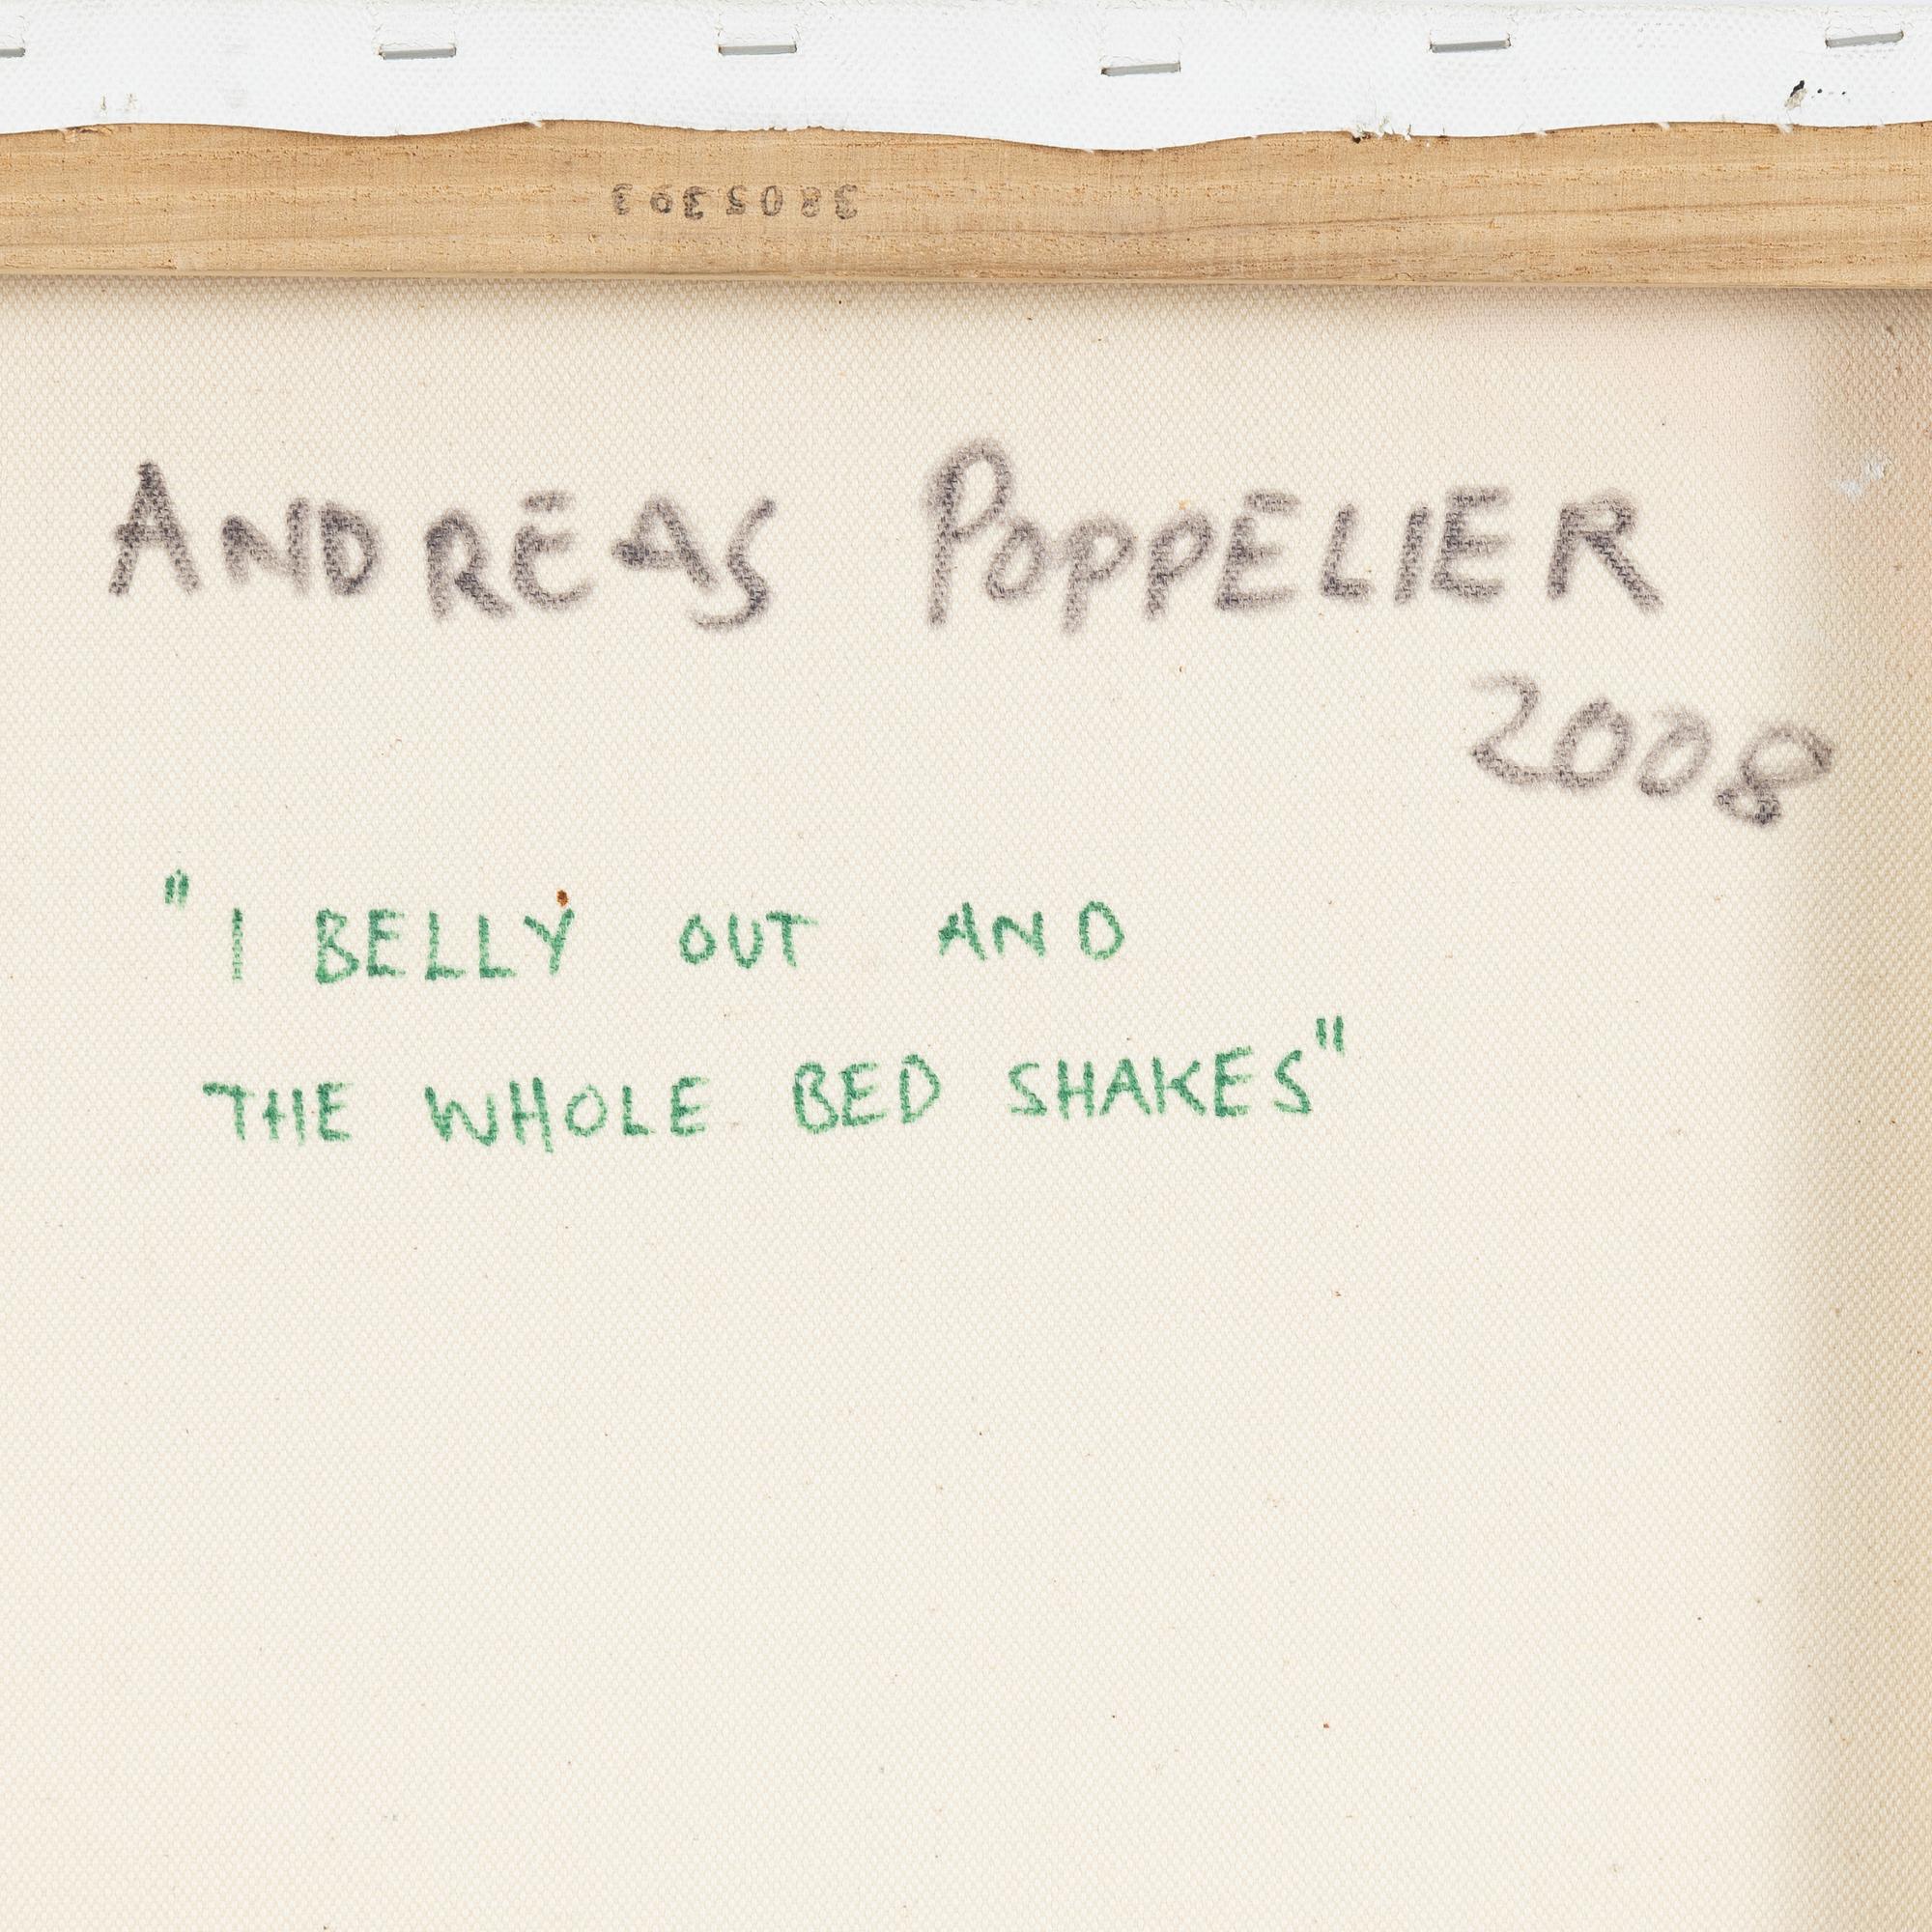 ANDREAS POPPELIER
2008
"I BELLY OUT AND
THE WHOLE BED SHAKES"